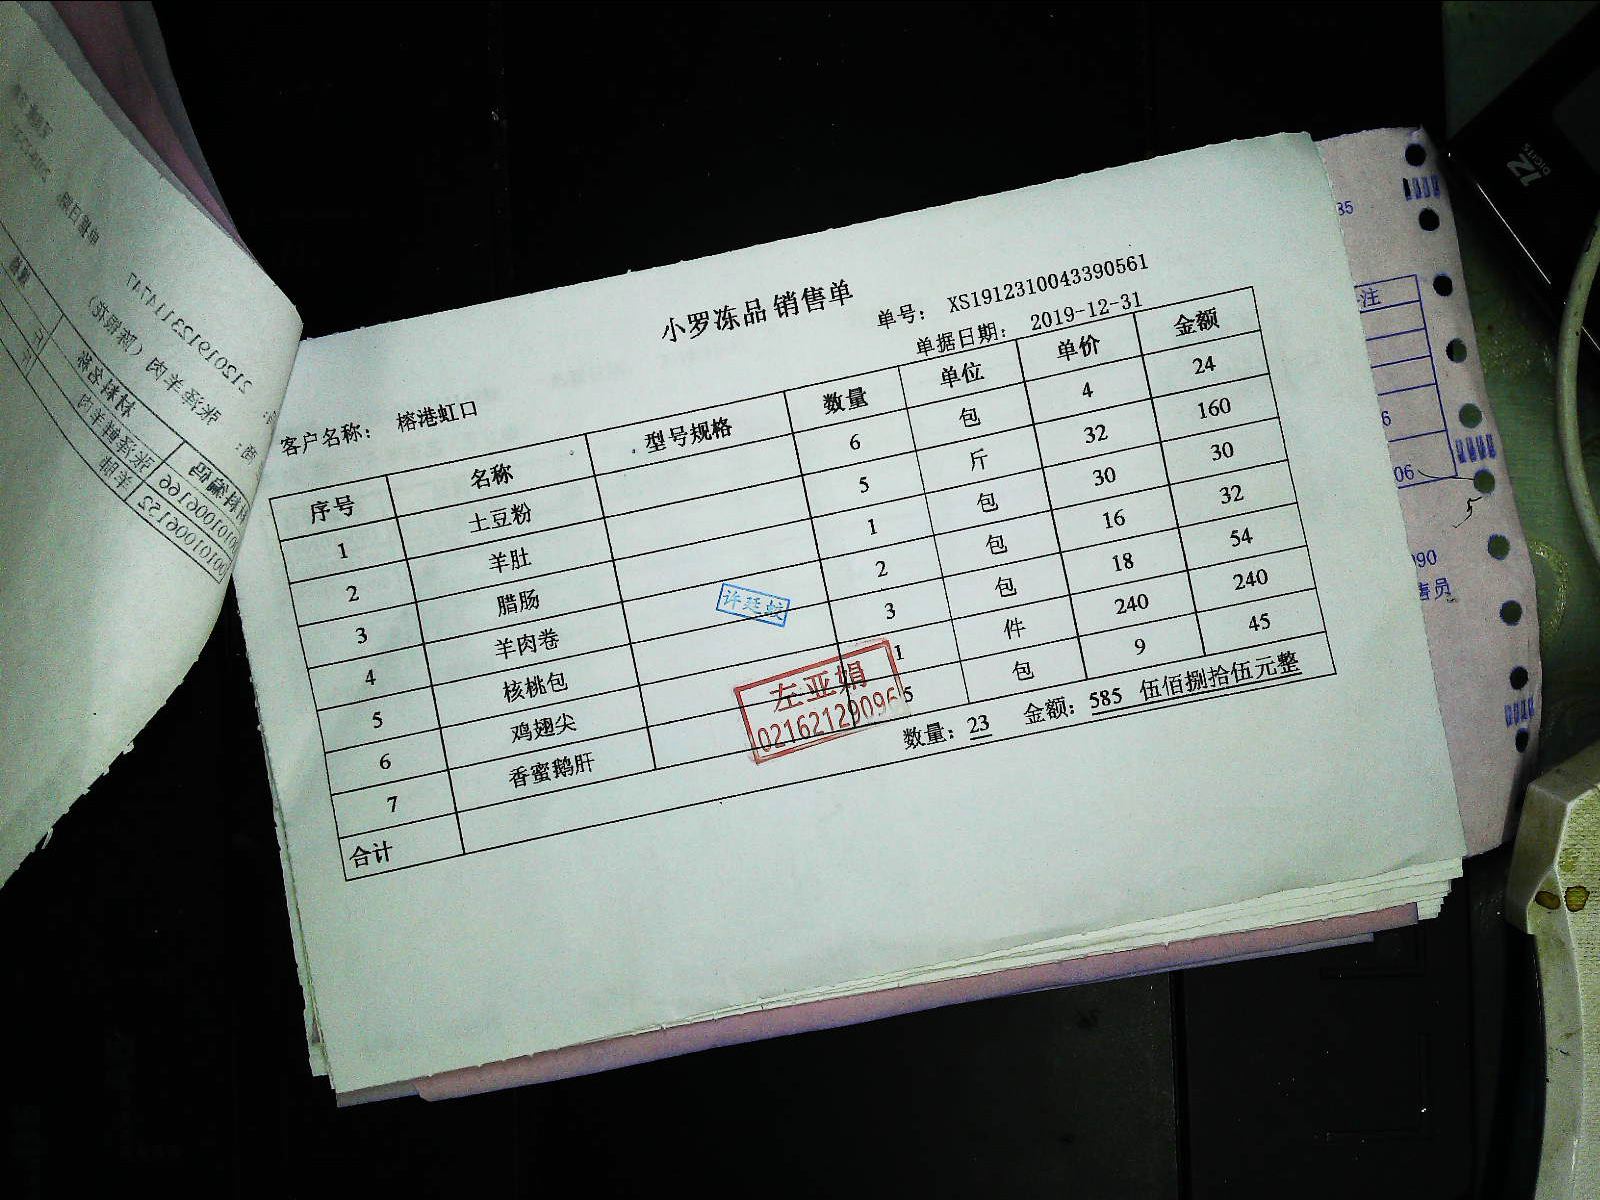 小罗冻品 销售单
单号： XS1912310043390561
单据日期： 2019-12-31
客户名称： 榕港虹口
序号 名称 型号规格 数量 单位 单价 金额
1 土豆粉 6 包 4 24
2 羊肚 5 斤 32 160
3 腊肠 1 包 30 30
4 羊肉卷 2 包 16 32
5 核桃包 3 包 18 54
6 鸡翅尖 1 件 240 240
7 香蜜鹅肝 5 包 9 45
合计 数量：23 金额：585 伍佰捌拾伍元整
许廷蛟
左亚娟
021621290965
12
DIGITS
35
注
6
06
5
090
售员